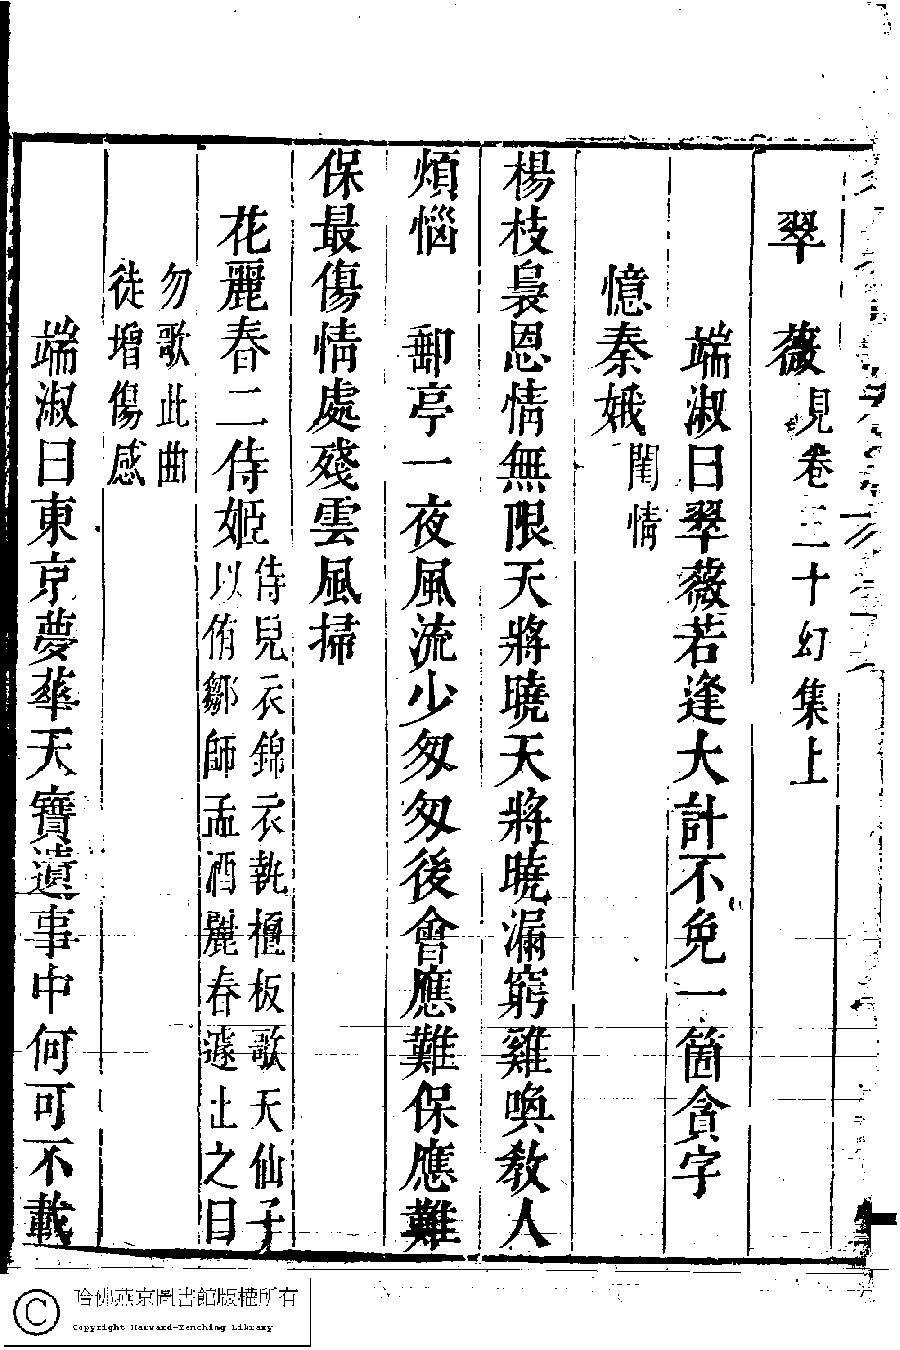 翠　薇見卷三十幻集上
端淑曰翠薇若逢大計不免一箇貪字
憶秦娥閨情
楊枝裊恩情無限天將曉天將曉漏窮雞喚教人
煩惱　郵亭一夜風流少匆匆後會應難保應難
保最傷情處殘雲風掃
花麗春二侍姬侍兒衣錦衣執檀板歌天仙子
以侑鄒師孟酒麗春遽止之曰
勿歌此曲
徒增傷感
端淑曰東京夢華天寶遺事中何可不載
哈佛燕京圖書館版權所有
Copyright Harvard-Yenching Library